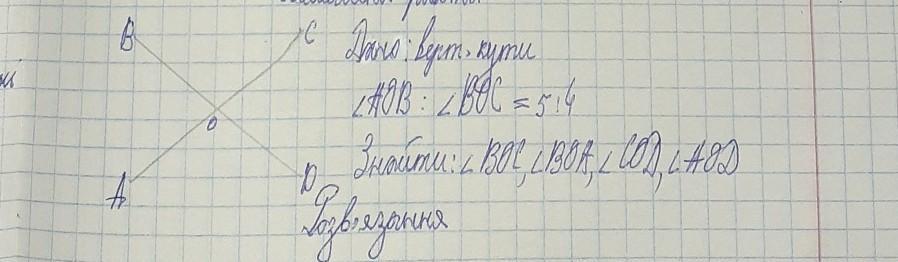 B
C
Дано: верт. кути
∠AOB : ∠BOC = 5:4
O
Знайти: ∠BOC, ∠BOA, ∠COD, ∠AOD
A
D
Розв'язання